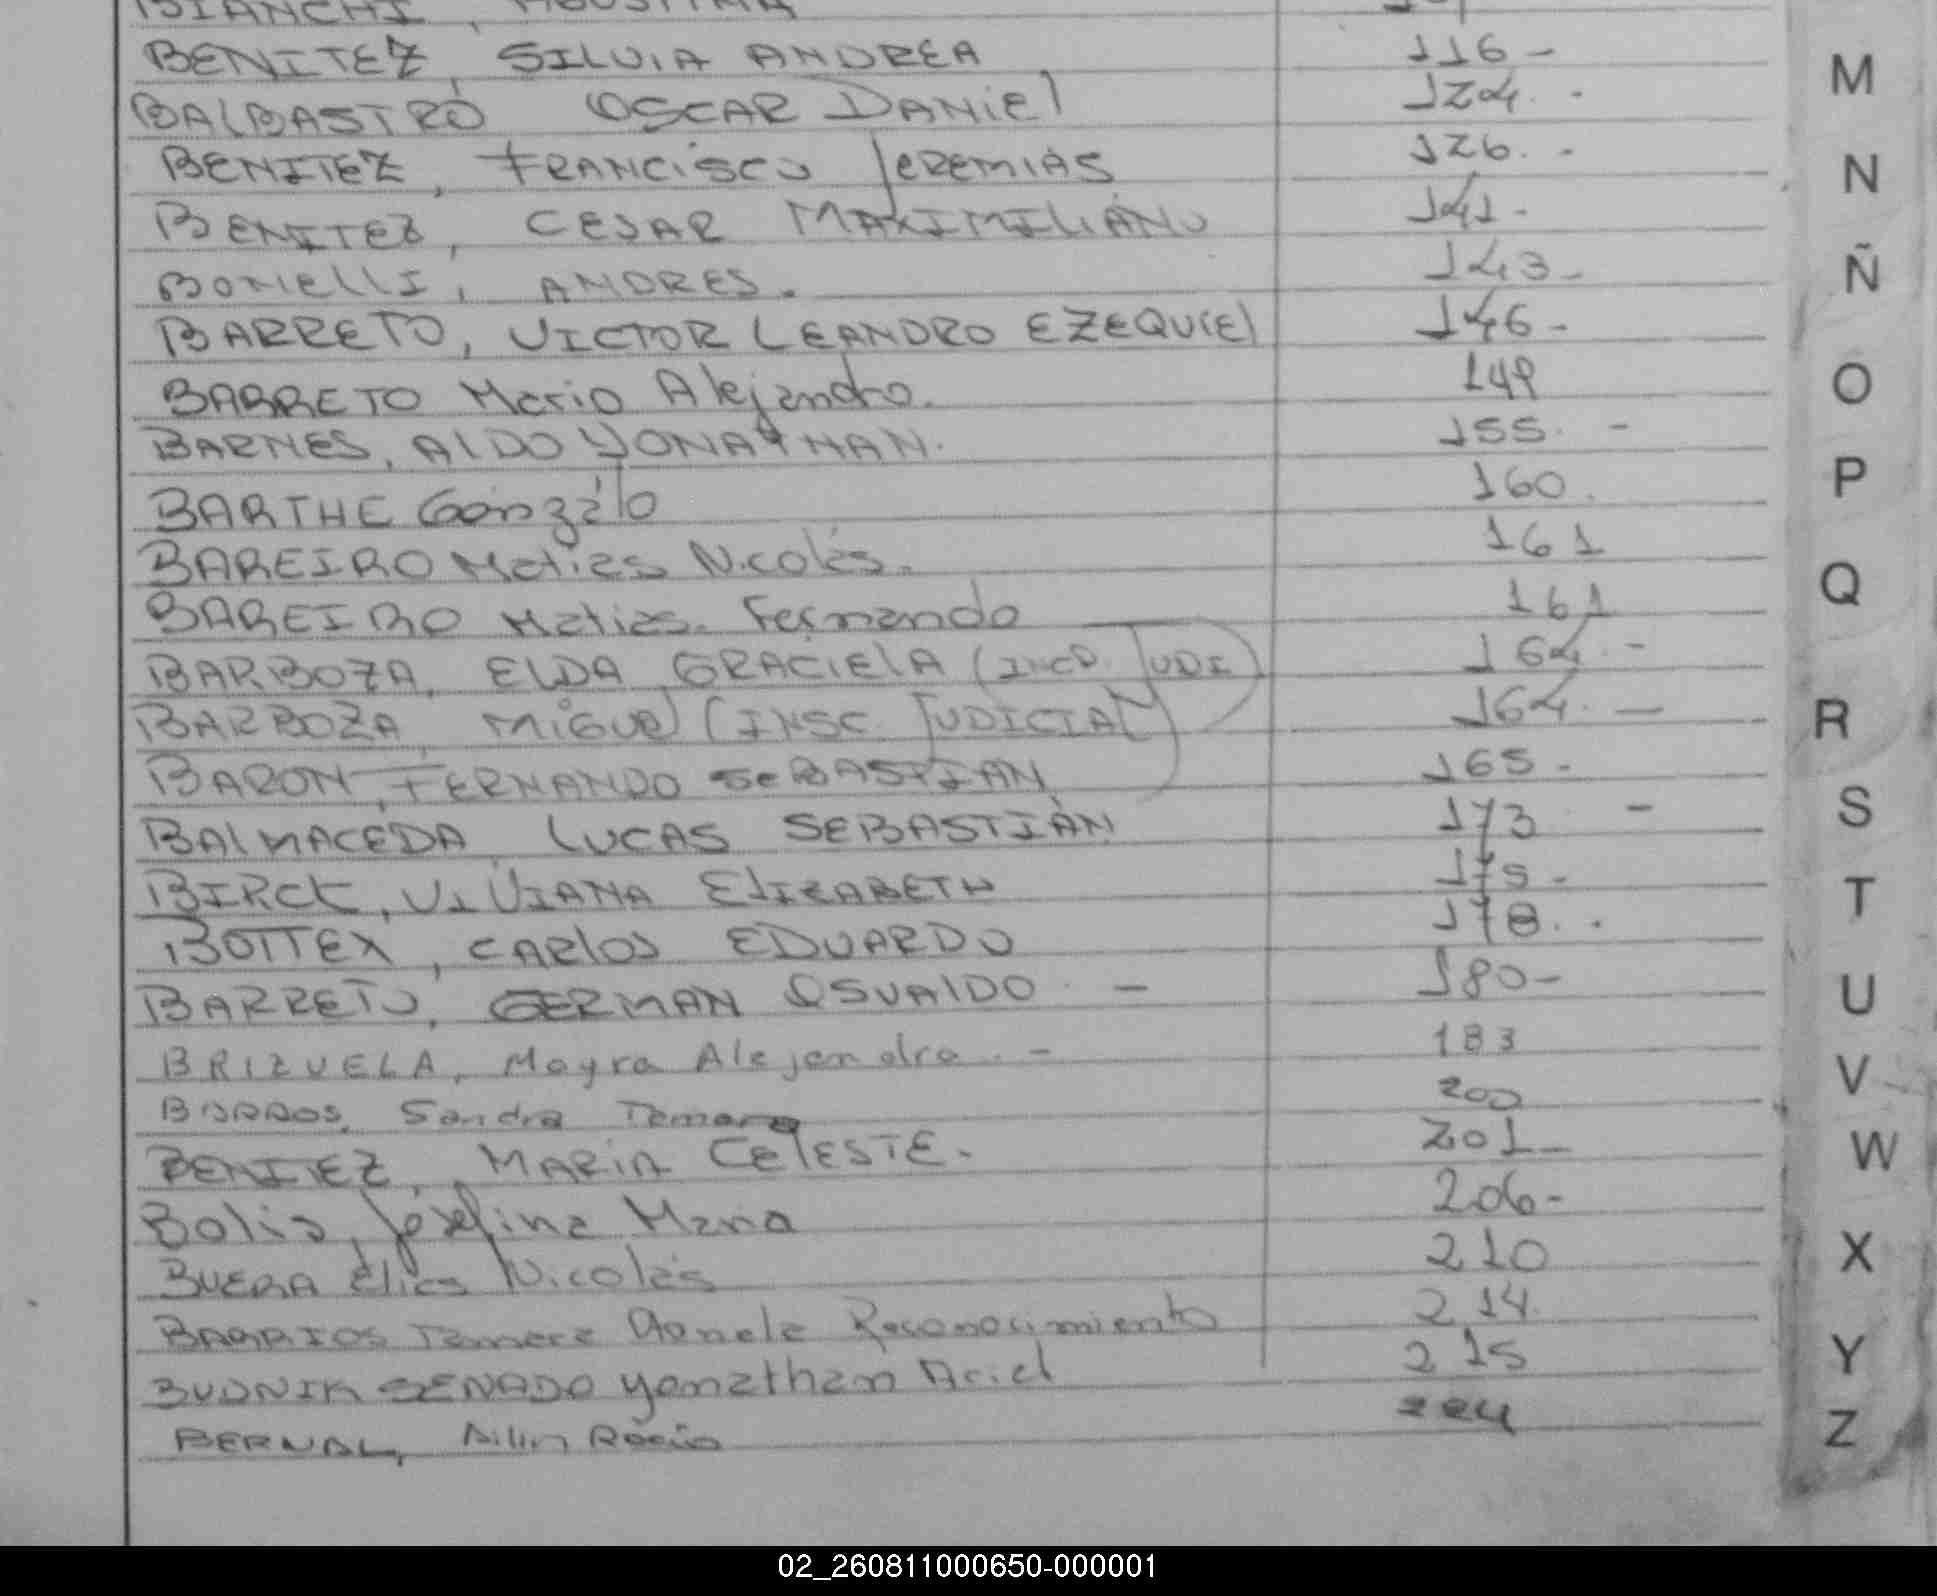 BIANCHI, AGUSTINA
BENITEZ, SILVIA ANDREA 116 -
BALBASTRO OSCAR DANIEL 124. -
BENITEZ, FRANCISCO JEREMIAS 126. -
BENITEZ, CESAR MAXIMILIANO 141 -
BONELLI, ANDRES. 143 -
BARRETO, VICTOR LEANDRO EZEQUIEL 146 -
BARRETO Mario Alejandro. 149
BARNES, ALDO YONATHAN. 155. -
BARTHE Gonzalo 160.
BAREIRO Matias Nicolás. 161
BAREIRO Matias. Fernando 161
BARBOZA, ELDA GRACIELA (INCD. JUDI) 164. -
BARBOZA, MIGUEL (INSC. JUDICIAL) 164. -
BARON, FERNANDO SEBASTIAN 165 -
BALMACEDA, LUCAS SEBASTIÁN 173 -
BIRCK, VIVIANA ELIZABETH 175 -
BOTTEX, CARLOS EDUARDO 178. -
BARRETO, GERMAN OSVALDO - 180 -
BRIZUELA, Mayra Alejandra. - 183
BORDOS, Sandra Tamara 200
BENITEZ, MARIA CELESTE. 201 -
Bolis, Josefina Maria 206 -
BUERA Elias Nicolás 210
BARRIOS Tamara Reconocimiento 214.
BUDNIK SENADO Yonathan Ariel 215
BERNAL, Ailin Rocio 224
M
N
Ñ
O
P
Q
R
S
T
U
V
W
X
Y
Z
02_260811000650-000001